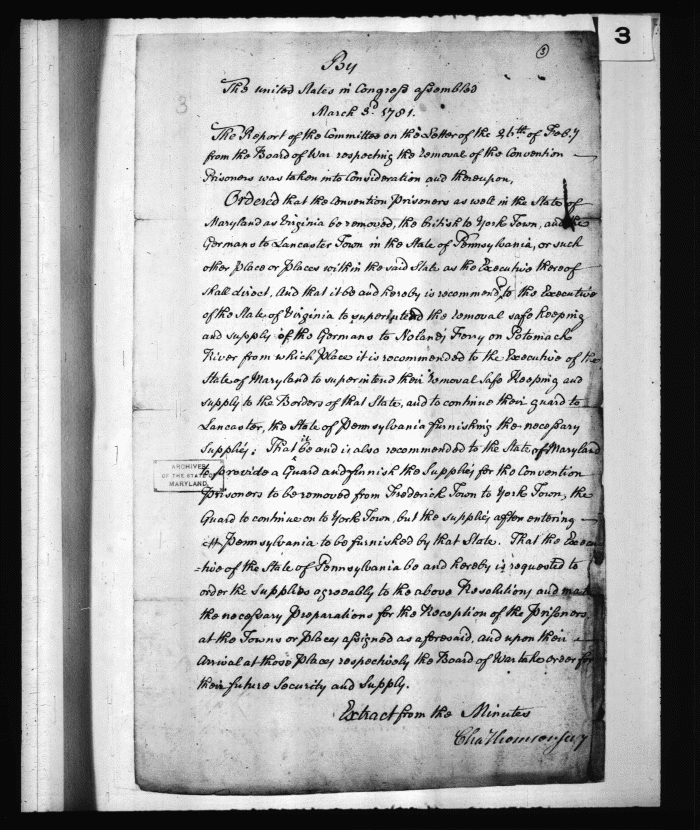 3
③
3
By
The United States in Congress assembled
March 3d. 1781.
The Report of the Committee on the Letter of the 26th of Feb.y
from the Board of War respecting the removal of the Convention
Prisoners was taken into Consideration and thereupon,
Ordered that the Convention Prisoners as well in the State of
Maryland as Virginia be removed, the british to York Town, and the
Germans to Lancaster Town in the State of Pennsylvania, or such
other place or places within the said State as the Executive thereof
shall direct, And that it be and hereby is recommend.d to the Executive
of the State of Virginia to superintend the removal safe keeping
and supply of the Germans to Nolands Ferry on Potomack
River from which Place it is recommended to the Executive of the
State of Maryland to superintend their removal Safe Keeping and
supply to the Borders of that State, and to continue their guard to
Lancaster, the State of Pennsylvania furnishing the necessary
Supplies; That it be and is also recommended to the State of Maryland
to provide a Guard and furnish the Supplies for the Convention
Prisoners to be removed from Frederick Town to York Town, the
Guard to continue on to York Town, but the supplies after entering
Pennsylvania to be furnished by that State. That the Execu
=tive of the State of Pennsylvania be and hereby is requested to
order the Supplies agreeably to the above Resolutions and make
the necessary Preparations for the Reception of the Prisoners
at the Towns or Places assigned as aforesaid, And upon their
Arrival at those Places respectively the Board of War take order for
their future Security and Supply.
Extract from the Minutes
Cha Thomson Secy
ARCHIVES
OF THE STATE OF
MARYLAND